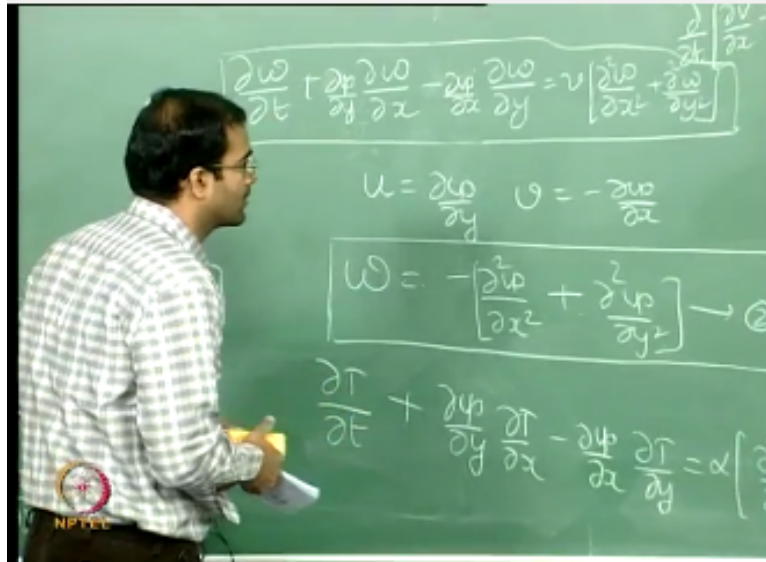 ∂/∂t [∂v/∂x -
∂ω/∂t + ∂ψ/∂y ∂ω/∂x - ∂ψ/∂x ∂ω/∂y = ν [∂²ω/∂x² + ∂²ω/∂y²]
u = ∂ψ/∂y v = -∂ψ/∂x
ω = -[∂²ψ/∂x² + ∂²ψ/∂y²] → ②
∂T/∂t + ∂ψ/∂y ∂T/∂x - ∂ψ/∂x ∂T/∂y = α [
NPTEL